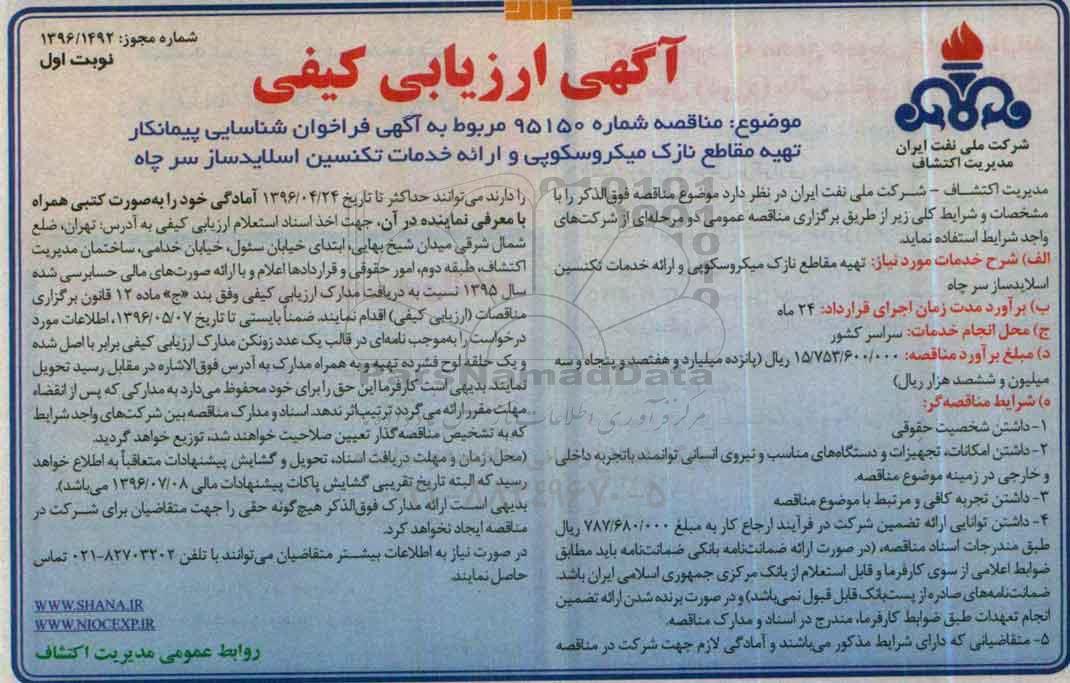 شماره مجوز: ۱۳۹۶/۱۴۹۲
نوبت اول
آگهی ارزیابی کیفی
شرکت ملی نفت ایران
مدیریت اکتشاف
موضوع: مناقصه شماره ۹۵۱۵۰ مربوط به آگهی فراخوان شناسایی پیمانکار
تهیه مقاطع نازک میکروسکوپی و ارائه خدمات تکنسین اسلایدساز سر چاه
مدیریت اکتشــاف – شــرکت ملی نفت ایران در نظر دارد موضوع مناقصه فوق‌الذکر را با
مشخصات و شرایط کلی زیر از طریق برگزاری مناقصه عمومی دو مرحله‌ای از شرکت‌های
واجد شرایط استفاده نماید.
الف) شرح خدمات مورد نیاز: تهیه مقاطع نازک میکروسکوپی و ارائه خدمات تکنسین
اسلایدساز سر چاه
ب) برآورد مدت زمان اجرای قرارداد: ۲۴ ماه
ج) محل انجام خدمات: سراسر کشور
د) مبلغ برآورد مناقصه: ۱۵/۷۵۳/۶۰۰/۰۰۰ ریال (پانزده میلیارد و هفتصد و پنجاه و سه
میلیون و ششصد هزار ریال)
ه) شرایط مناقصه‌گر:
۱- داشتن شخصیت حقوقی
۲- داشتن امکانات، تجهیزات و دستگاه‌های مناسب و نیروی انسانی توانمند باتجربه داخلی
و خارجی در زمینه موضوع مناقصه.
۳- داشتن تجربه کافی و مرتبط با موضوع مناقصه
۴- داشتن توانایی ارائه تضمین شرکت در فرآیند ارجاع کار به مبلغ ۷۸۷/۶۸۰/۰۰۰ ریال
طبق مندرجات اسناد مناقصه، (در صورت ارائه ضمانت‌نامه بانکی ضمانت‌نامه باید مطابق
ضوابط اعلامی از سوی کارفرما و قابل استعلام از بانک مرکزی جمهوری اسلامی ایران باشد.
ضمانت‌نامه‌های صادره از پست‌بانک قابل قبول نمی‌باشد) و در صورت برنده شدن ارائه تضمین
انجام تعهدات طبق ضوابط کارفرما، مندرج در اسناد و مدارک مناقصه.
۵- متقاضیانی که دارای شرایط مذکور می‌باشند و آمادگی لازم جهت شرکت در مناقصه
را دارند می‌توانند حداکثر تا تاریخ ۱۳۹۶/۰۴/۲۴ آمادگی خود را به‌صورت کتبی همراه
با معرفی نماینده در آن، جهت اخذ اسناد استعلام ارزیابی کیفی به آدرس: تهران، ضلع
شمال شرقی میدان شیخ بهایی، ابتدای خیابان سئول، خیابان خدامی، ساختمان مدیریت
اکتشاف، طبقه دوم، امور حقوقی و قراردادها اعلام و با ارائه صورت‌های مالی حسابرسی شده
سال ۱۳۹۵ نسبت به دریافت مدارک ارزیابی کیفی وفق بند «ج» ماده ۱۲ قانون برگزاری
مناقصات (ارزیابی کیفی) اقدام نمایند. ضمناً بایستی تا تاریخ ۱۳۹۶/۰۵/۰۷، اطلاعات مورد
درخواست را به‌موجب نامه‌ای در قالب یک عدد زونکن مدارک ارزیابی کیفی برابر با اصل شده
و یک حلقه لوح فشرده تهیه و به همراه مدارک به آدرس فوق‌الاشاره در مقابل رسید تحویل
نمایند. بدیهی است کارفرما این حق را برای خود محفوظ می‌دارد به مدارکی که پس از انقضاء
مهلت مقرر ارائه می‌گردد ترتیب اثر ندهد. اسناد و مدارک مناقصه بین شرکت‌های واجد شرایط
که به تشخیص مناقصه‌گذار تعیین صلاحیت خواهند شد، توزیع خواهد گردید.
(محل، زمان و مهلت دریافت اسناد، تحویل و گشایش پیشنهادات متعاقباً به اطلاع خواهد
رسید که البته تاریخ تقریبی گشایش پاکات پیشنهادات مالی ۱۳۹۶/۰۷/۰۸ می‌باشد).
بدیهی اســت ارائه مدارک فوق‌الذکر هیچ‌گونه حقی را جهت متقاضیان برای شــرکت در
مناقصه ایجاد نخواهد کرد.
در صورت نیاز به اطلاعات بیشــتر متقاضیان می‌توانند با تلفن ۸۲۷۰۳۲۰۲-۰۲۱ تماس
حاصل نمایند.
WWW.SHANA.IR
WWW.NIOCEXP.IR
روابط عمومی مدیریت اکتشاف
ParsNamadData